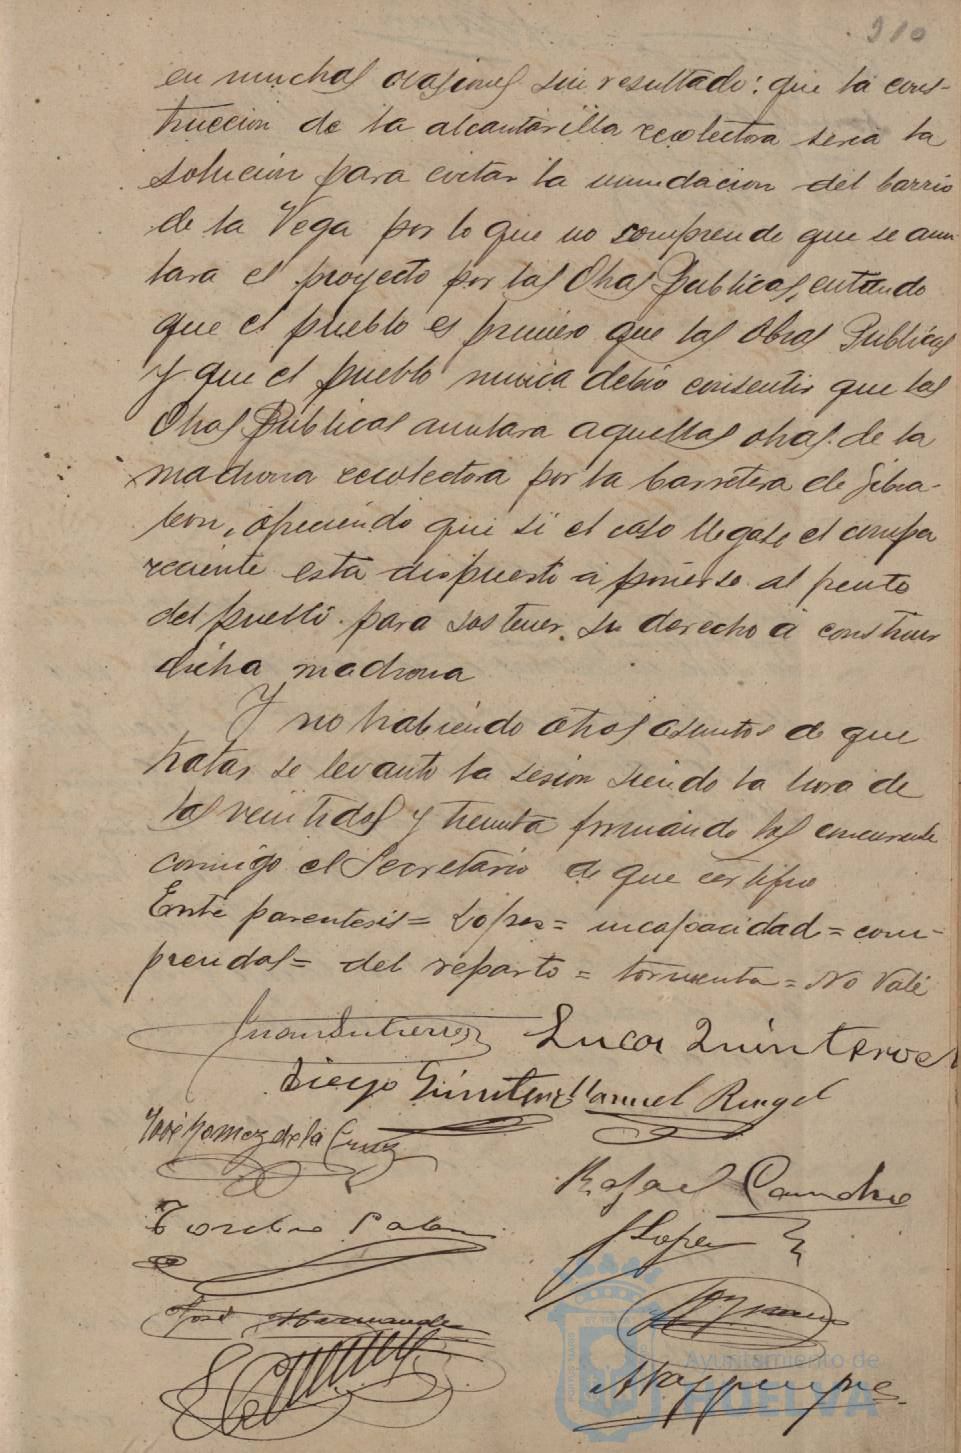 210
en muchas ocasiones sin resultado: que la cons-
truccion de la alcantarilla recolectora seria la
solucion para evitar la inundacion del barrio
de la Vega por lo que no comprende que se anu-
lara el proyecto por las Obras Publicas, entiendo
que el pueblo es primero que las Obras Publicas
Y que el pueblo nunca debió consentir que las
Obras Publicas anulara aquellas obras de la
madrona recolectora por la carretera de Gibra-
leon, ofreciendo que si el caso llegase el compa
reciente esta dispuesto a ponerse al frente
del pueblo para sostener su derecho á construir
dicha madrona
Y no habiendo otros asuntos de que
tratar se levantó la sesion siendo la hora de
las veintidos y treinta firmando los concurrente
conmigo el Secretario de que certifico
Entre parentesis = Lopez = incapacidad = com-
prendas = del reparto = tormenta = No Vale
Juan Gutierrez Lucas Quintero
Diego Manuel Rengel
José Gomez de la Cruz
Rafael
Lopez
José Hernandez
Ayuntamiento de
HUELVA